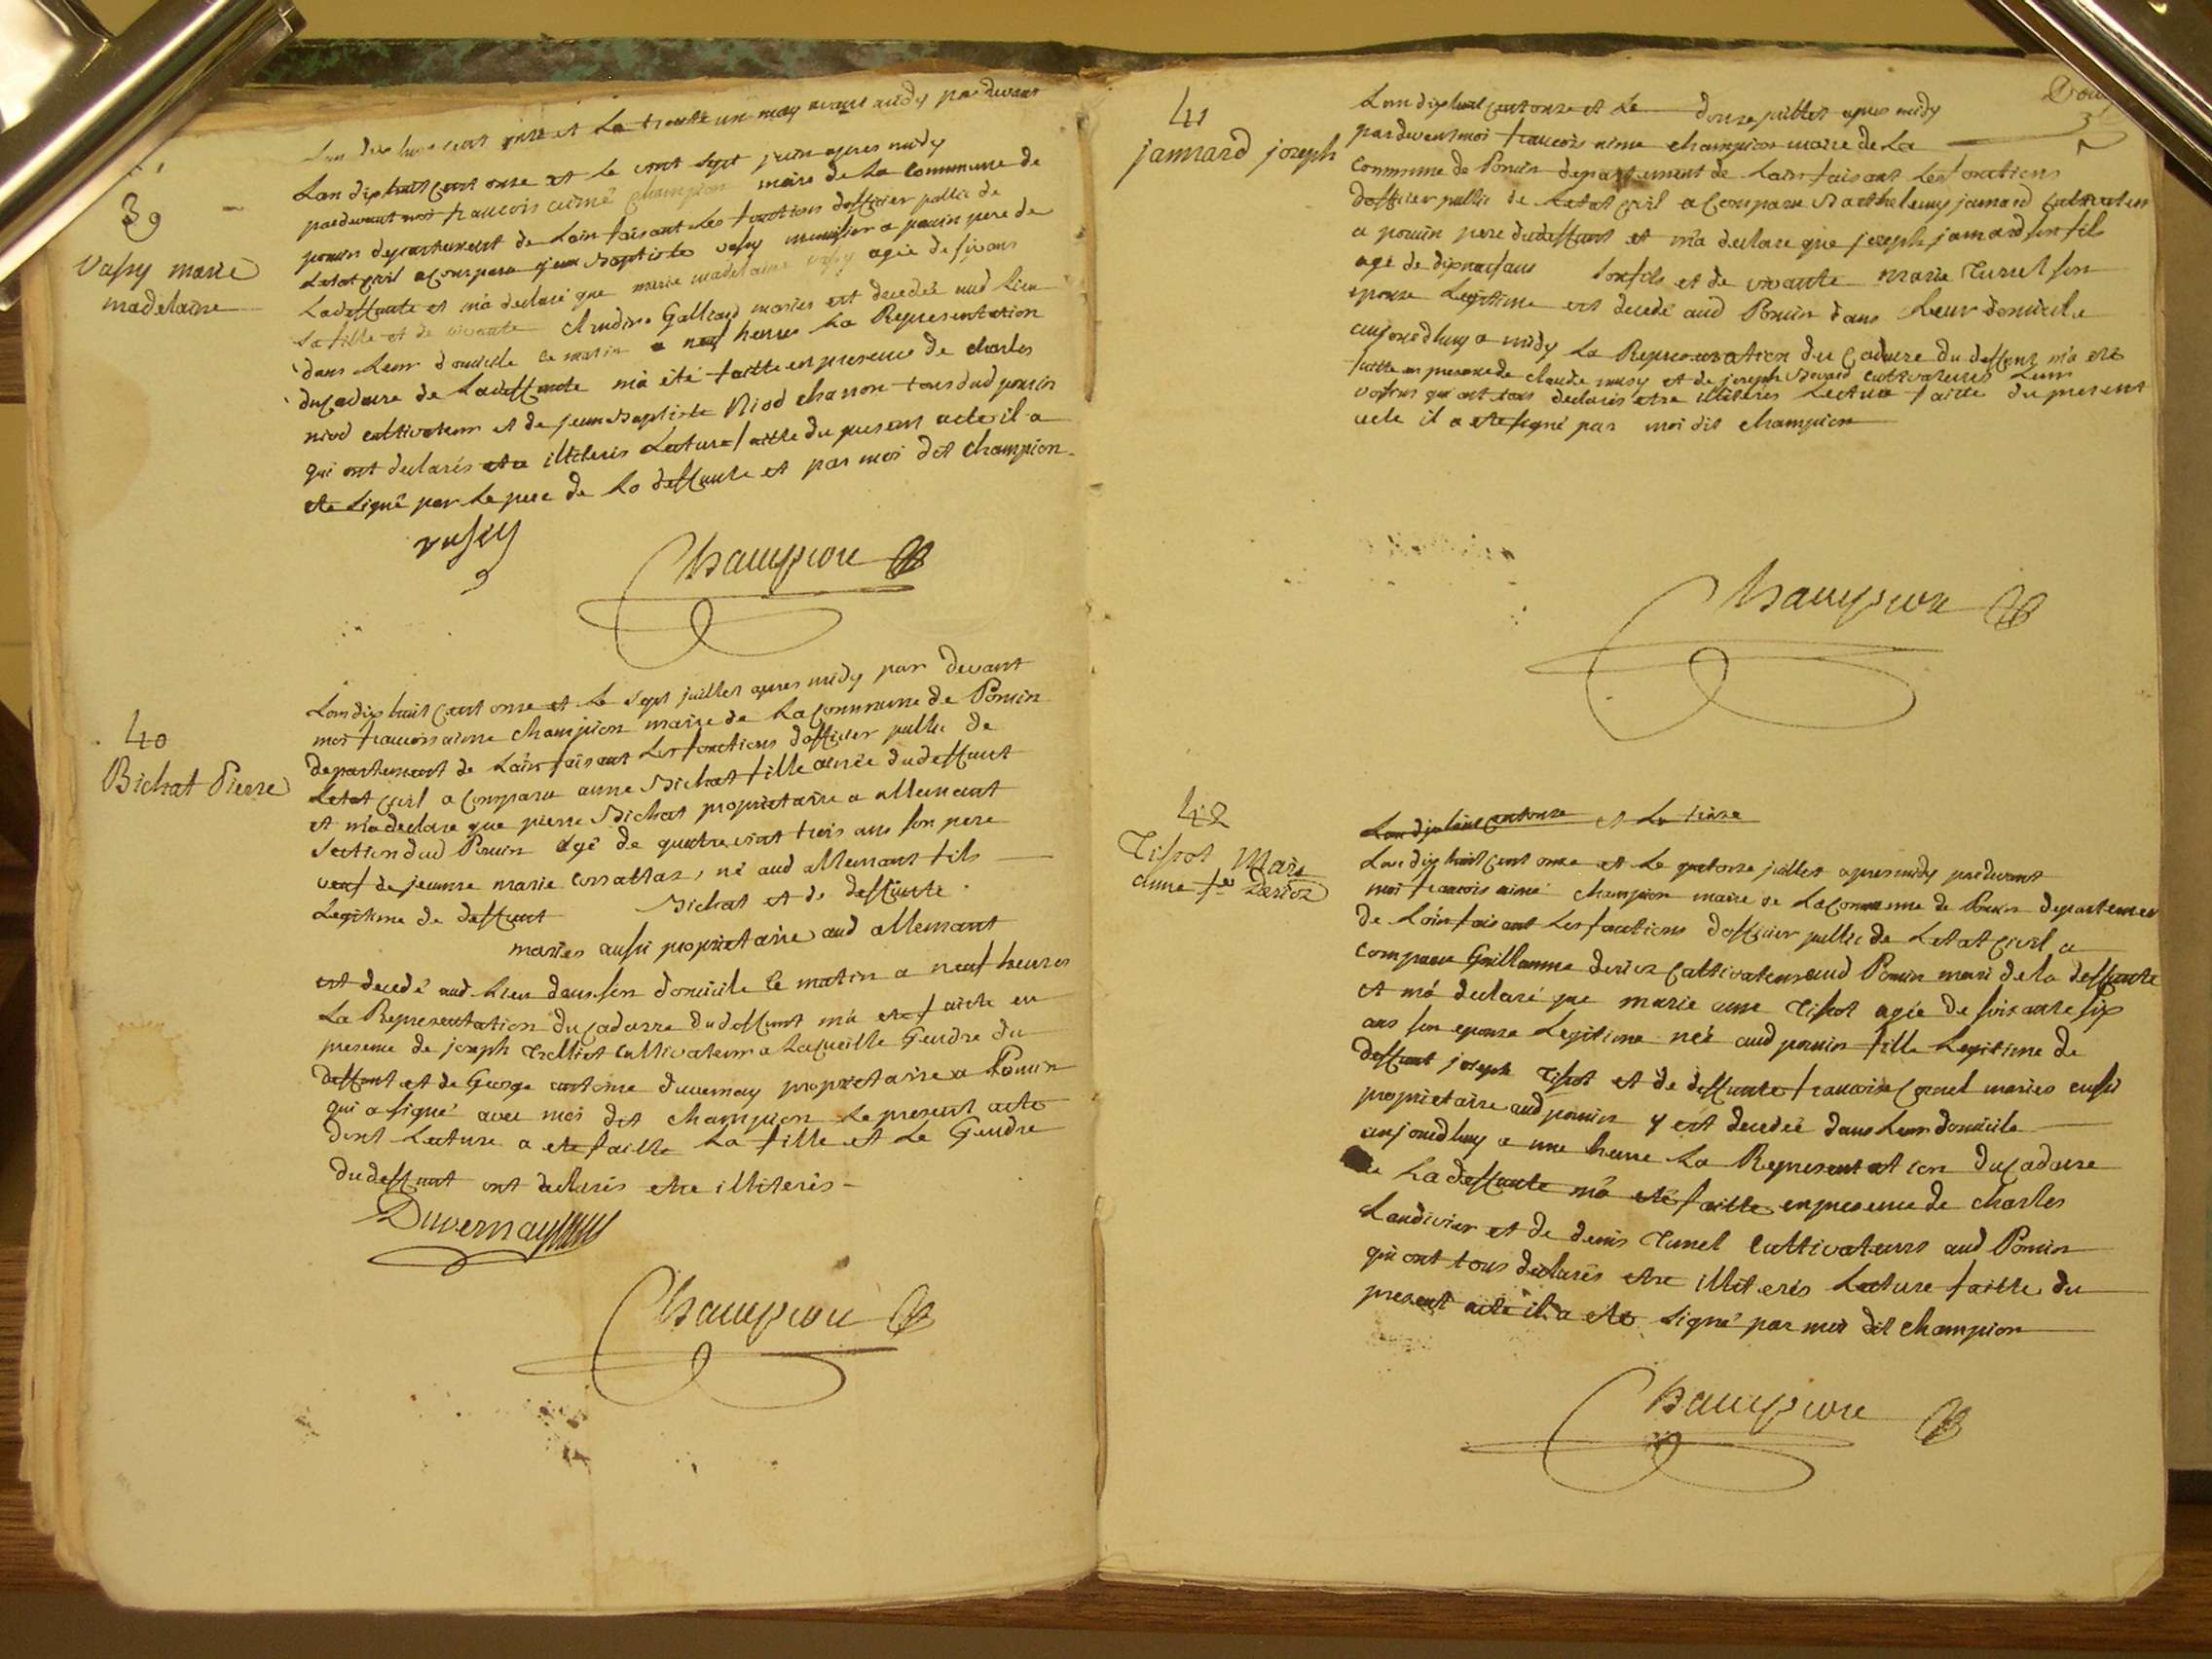 39
Vassy marie
madelaine
Lan dix huit cent onze et Le trente un may avant midy pardevant
Lan dix huit cent onze et Le vint sept juin apres midy
pardevant moi francois aimé champion maire de La commune de
poncin departement de Lain faisant Les fonctions dofficier public de
Letat civil a Comparu jean Baptiste vassy menusier a poncin pere de
Ladeffunte et m'a declaré que marie madelaine vassy agée de six ans
sa fille et de vivante Claudine Galliard mariés est decedée aud Lieu
dans Leur domicille ce matin a neuf heures La Representation
du cadavre de Ladeffunte m'a été faitte en presence de charles
niod cultivateur et de jean Baptiste Niod charron tous dud poncin
qui ont declarés etre illiterés Lecture faitte du present acte il a
ete signé par Le pere de La deffunte et par moi dit champion
vassy
Champion
40
Bichat Pierre
Lan dix huit cent onze et Le sept juillet apres midy par devant
moi francois aime champion maire de La commune de Poncin
departement de Lain faisant Les fonctions dofficier public de
Letat civil a comparu anne Bichat fille ainée du deffunt
et m'a declare que pierre Bichat proprietaire a allemant
section dud Poncin agé de quatre vint trois ans son pere
veuf de jeanne marie corrattas, né aud allemant fils
Legitime de deffunt Bichat et de deffunte
mariés aussi proprietaire aud allemant
est decedé aud Lieu dans son domicile ce matin a neuf heures
La Representation du cadavre du deffunt m'a ete faitte en
presence de joseph Trolliet cultivateur a Lacueille Gendre du
deffunt et de George antoine duvernay proprietaire a Poncin
qui a signé avec moi dit champion Le present acte
dont Lecture a ete faitte La fille et Le Gendre
du deffunt ont declarés etre illiterés
Duvernay
Champion
41
jannard joseph
Lan dix huit cent onze et Le douze juillet apres midy
pardevant moi francois aime champion maire de La
commune de Poncin departement de Lain faisant Les fonctions
dofficier public de Letat civil a Comparu Barthelemy janard cultivateur
a poncin pere du deffunt et m'a declare que joseph janard son fils
agé de dix neuf ans son fils et de vivante marie Tunel son
epouse Legitime est decedé aud Poncin dans Leur domicile
aujourdhuy a midy La Representation du cadavre du deffunt m'a ete
faitte en presence de claude musy et de joseph Bovard cultivateurs Leurs
voisins qui ont tous declarés etre illiterés Lecture faitte du present
acte il a ete signé par moi dit champion
Champion
42
Tissot Marie
anne fe Dérioz
Lan dix huit cent onze et Le treize
Lan dix huit cent onze et Le quatorze juillet apres midy pardevant
moi francois aimé champion maire de La commune de Poncin departement
de Lain faisant Les fonctions dofficier public de Letat civil a
comparu Guillaume derioz cultivateur aud Poncin mari de la deffunte
et m'a declaré que marie anne Tissot agée de soixante six
ans son epouse Legitime née aud poncin fille Legitime de
deffunt joseph Tissot et de deffunte francoise Cornel mariés aussi
proprietaire aud poncin y est decedée dans Leur domicile
aujourdhuy a une heure La Representation du cadavre
de La deffunte m'a eté faitte en presence de charles
Landivier et de denis Tunel cultivateurs aud Poncin
qui ont tous declarés etre illiterés Lecture faitte du
present acte il a ete signé par moi dit champion
Champion